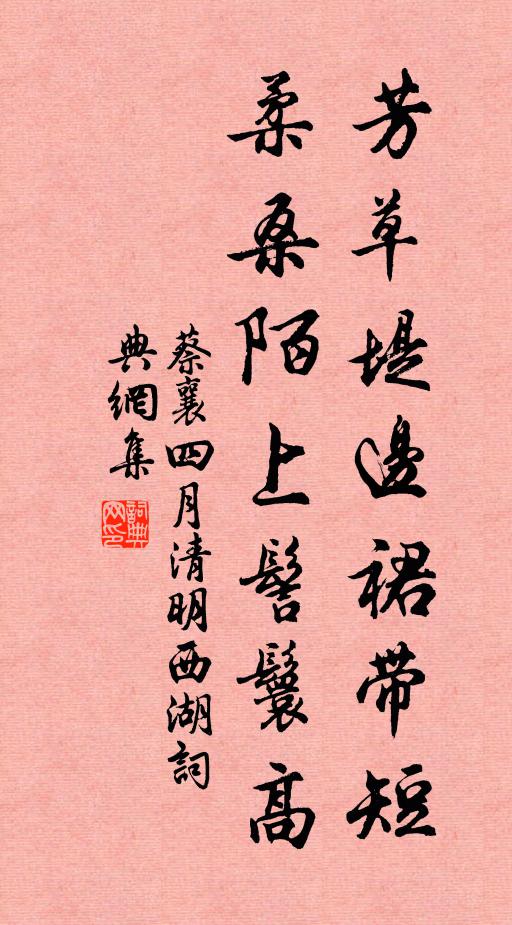 芳草堤邊裙帶短
柔桑陌上髻鬟高
蔡襄四月清明西湖詞
典網集
詞典网印